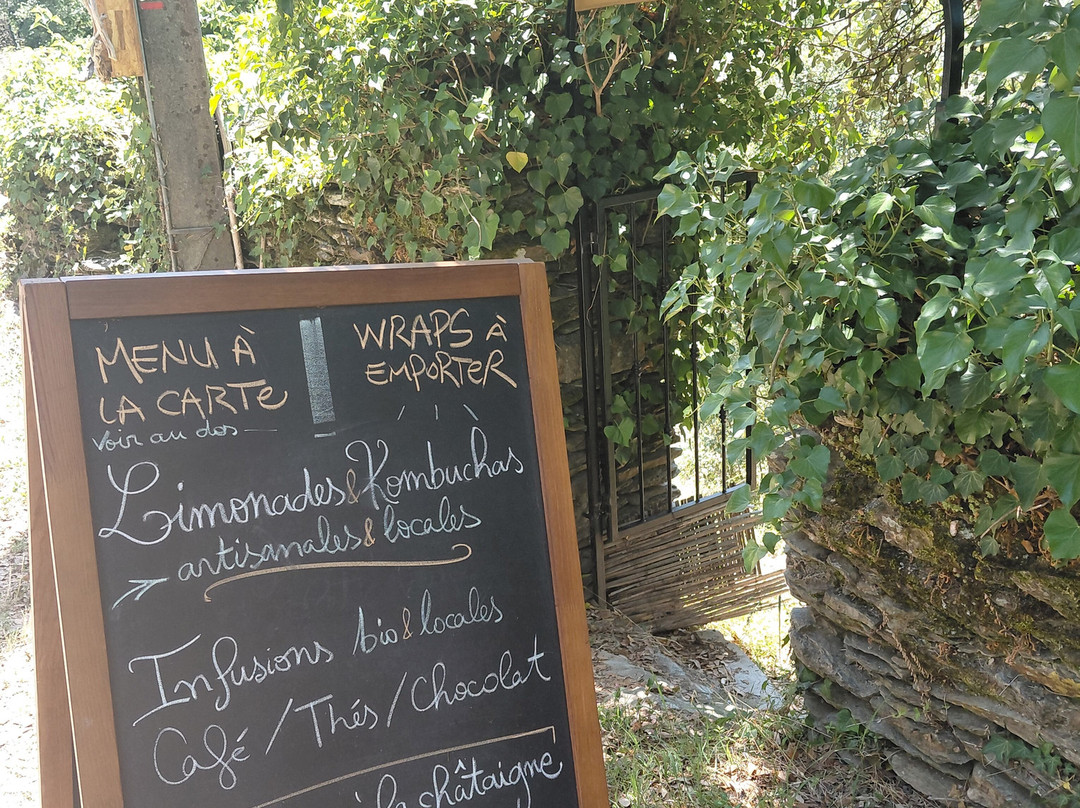 MENU À
LA CARTE
voir au dos
WRAPS À
EMPORTER
Limonades & Kombuchas
artisanales & locales
Infusions bio & locales
Café / Thés / Chocolat
à la châtaigne